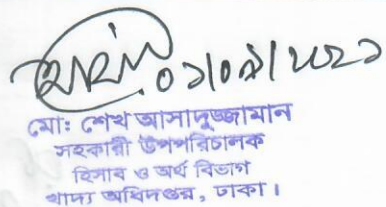 ০১/০৯/২০২১
মোঃ শেখ আসাদুজ্জামান
সহকারী উপপরিচালক
হিসাব ও অর্থ বিভাগ
খাদ্য অধিদপ্তর, ঢাকা।